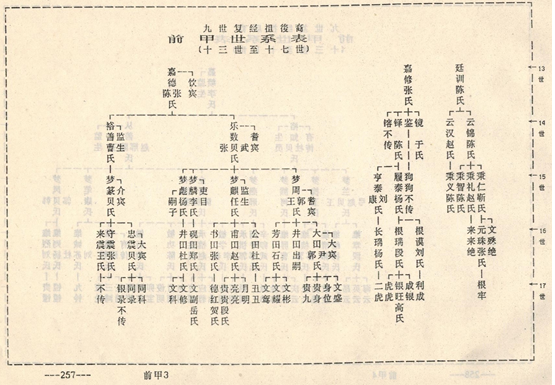 九世复经祖後裔
前甲世系表
(十三世至十七世)
13世
嘉德张氏
陈
饮宾
嘉修张氏
廷训陈氏
14世
裕善曹氏
监生
乐数贝氏
张 武
耆宾
镕不传
铎陈氏
鉴
镜于氏
云汉赵氏
云锦陈氏
15世
梦篆贝氏
介宾
梦彪杨氏
嗣子
梦麟李氏
吏目
梦麒任氏
监生
梦周王氏
郭
耆宾
亨泰刘氏
康
履泰杨氏
狗狗不传
秉义陈氏
秉智陈氏
秉礼赵氏
秉仁靳氏
16世
来震王氏
守震张氏
忠震贝氏
大宾
井田杜氏
砚田郑氏
书田张氏
甫田赵氏
公田杜氏
芳田石氏
井田出嗣
大田尹氏
郭
大宾
长璃杨氏
根璃段氏
根谟刘氏
来来绝
元珠张氏
文殊绝
17世
不传
银录不传
同录
同科
文科
文修
文副岳氏
德红贺氏
贵贵段氏
亮亮
月明
丑丑
文鸾
文耀
文彬
贵九
贵身
身位
文盛
二虎
虎虎
银旺高氏
成银
利成
根牢
---257---
前甲3